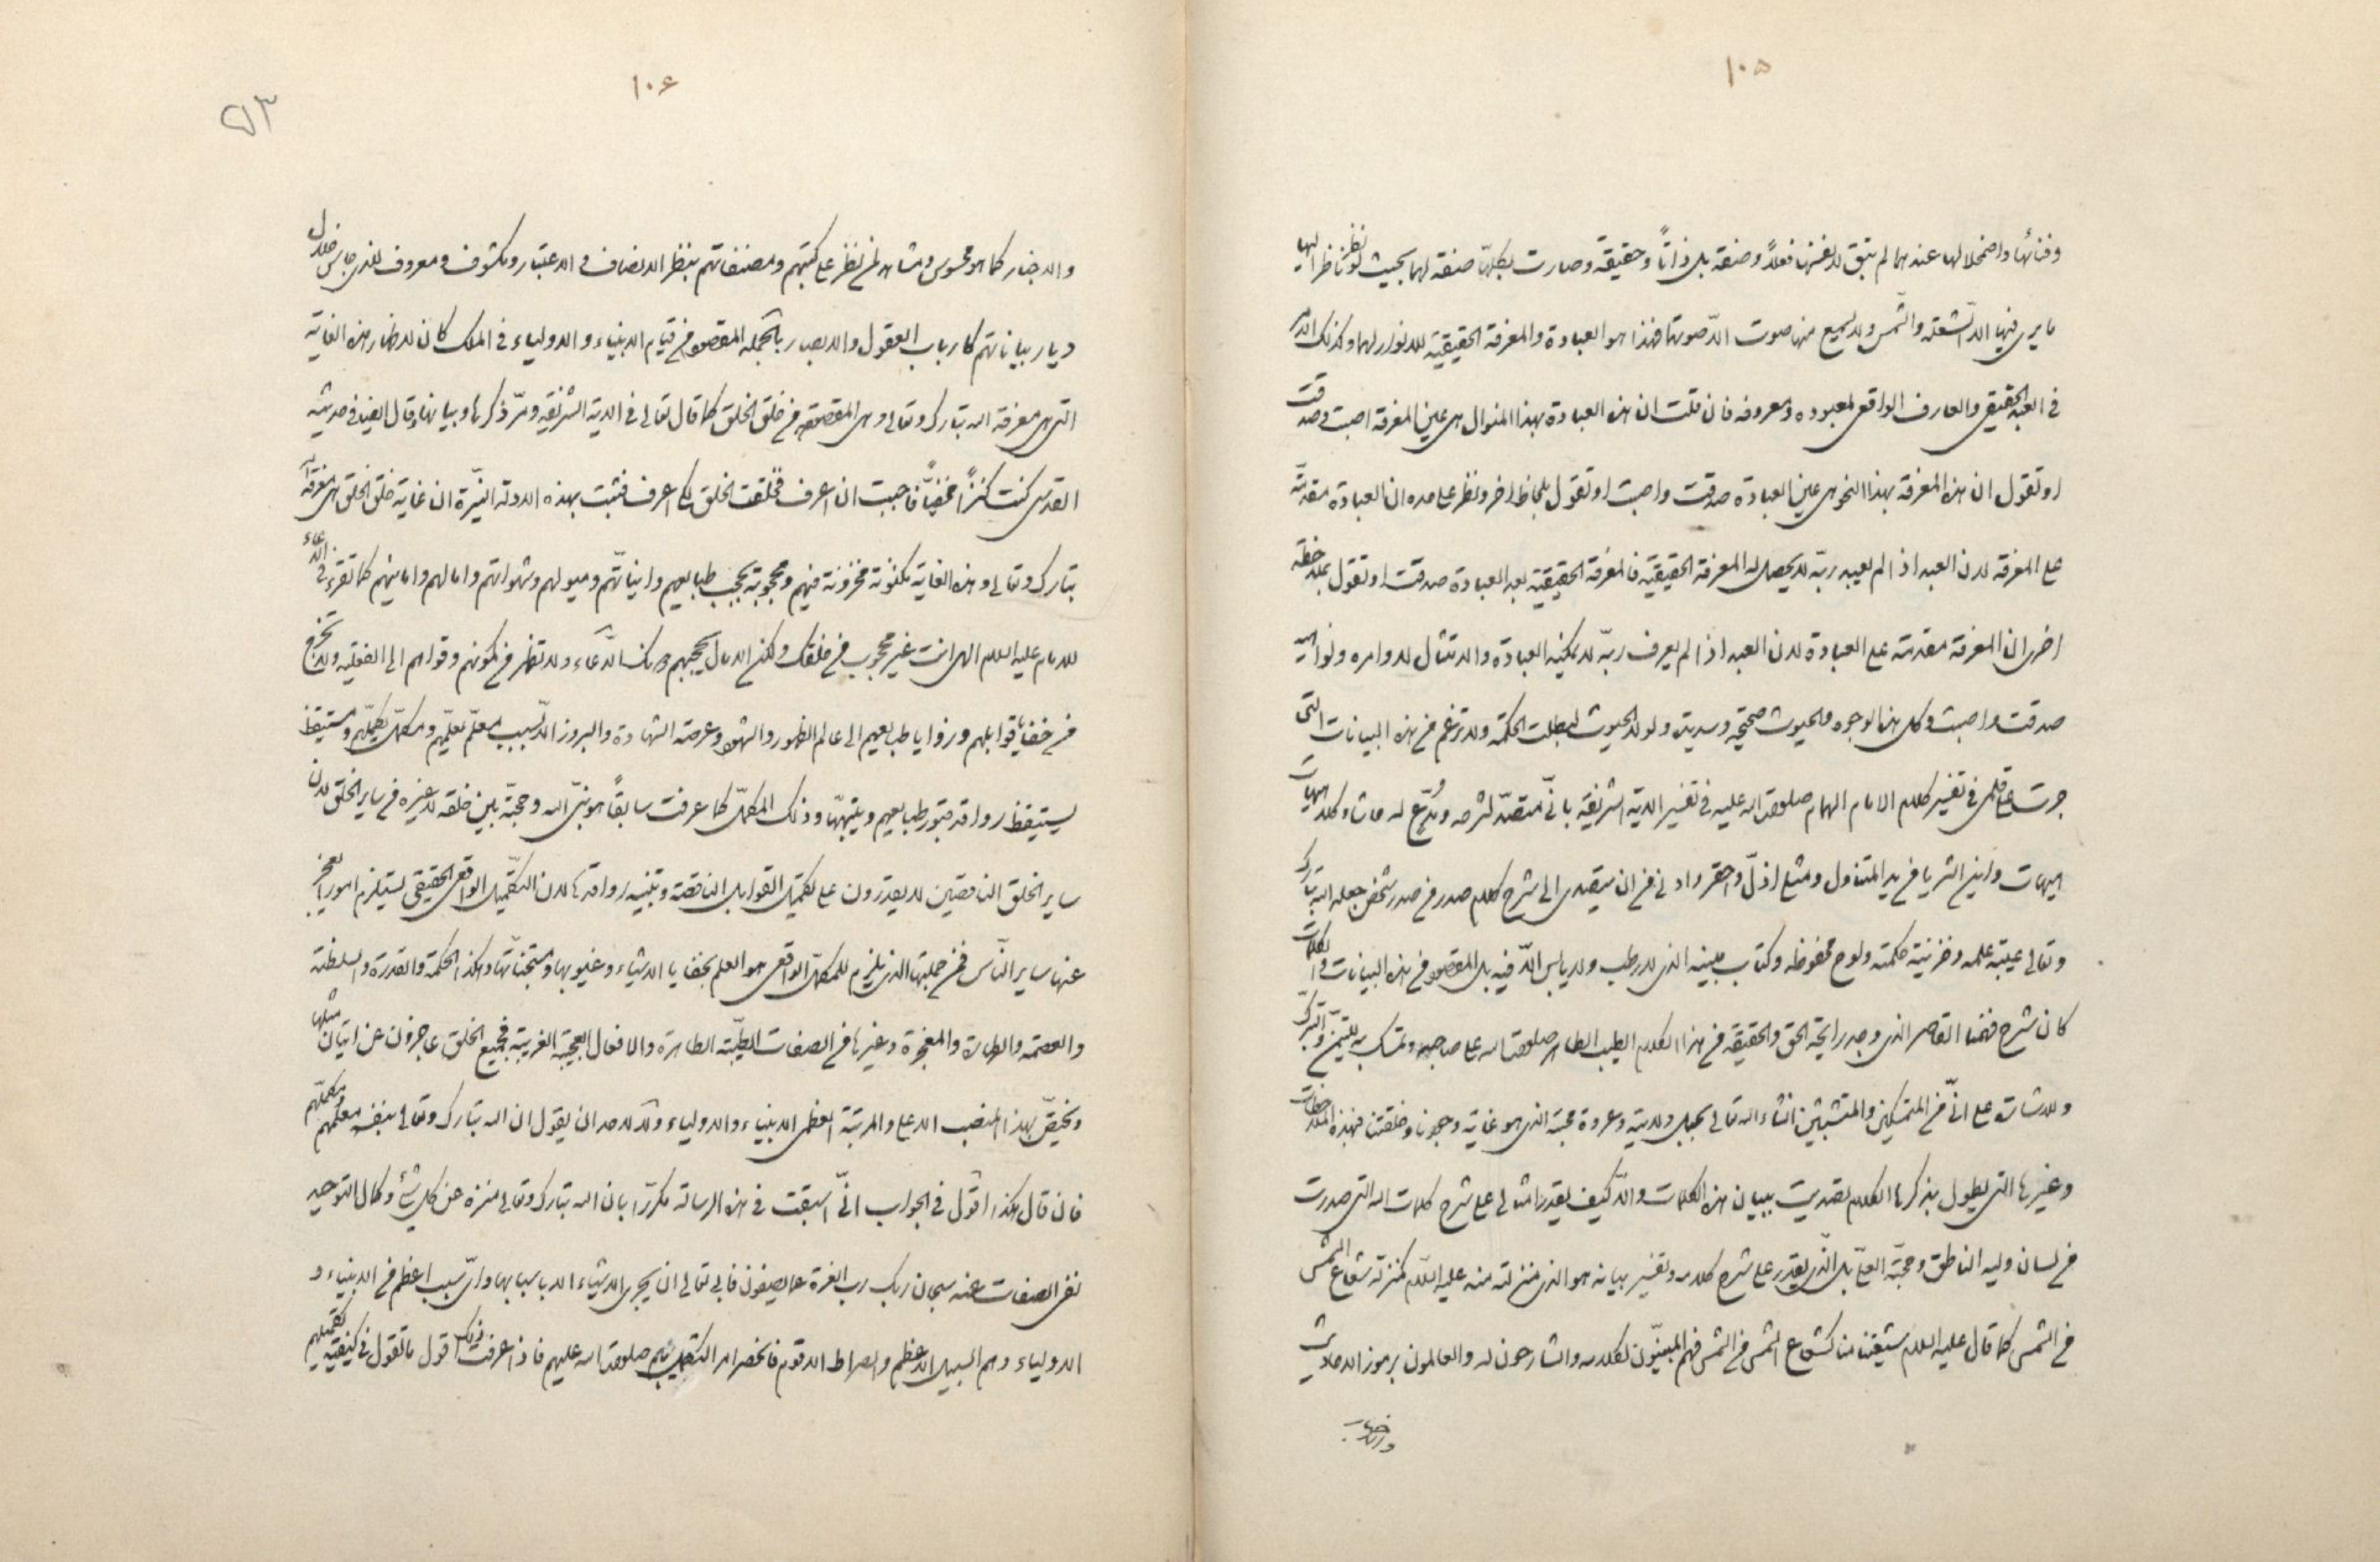 ١٠٥
وفنائها واضمحلالها عندهما لم تبق لنفسها فعلاً وصفة بل ذاتاً وحقيقة وصارت بكلها صفة لهما بحيث لو نظر ناظر اليها
ما يرى فيها الا الشعلة والشمس ولا يسمع منها صوت الا صوتهما فهذا هو العبادة والمعرفة الحقيقية للانوار لهما وكذلك الامر
في العبد الحقيقي والعارف الواقعي لمعبوده ومعروفه فان قلت ان هذه العبادة بهذا المنوال هي عين المعرفة اصبت وصدقت
او تقول ان هذه المعرفة بهذا النحو هي عين العبادة صدقت واصبت او تقول بلحاظ اخر ونظر على حده ان العبادة مقدمة
على المعرفة لان العبد اذا لم يعبد ربه لا يحصل له المعرفة الحقيقية فالمعرفة الحقيقية بعد العبادة صدقت او تقول بملاحظة
اخرى ان المعرفة مقدمة على العبادة لان العبد اذا لم يعرف ربه لا يمكنه العبادة والامتثال لاوامره ونواهيه
صدقت واصبت وكل هذه الوجوه والحيوث صحيحة وسديدة ولولا الحيوث لبطلت الحكمة ولا تزعم من هذه البيانات التي
جرت على قلمي في تفسير كلام الامام الهمام صلوات الله عليه في تفسير الاية الشريفة باني متصد لشرحه ومدع له حاشا وكلا هيهات
هيهات واين الثريا من يد المتناول ومثلي اذل واحقر وادنى من ان يتصدى الى شرح كلام صدر من صدر شخص جعله الله تبارك
وتعالى عيبة علمه وخزينة حكمته ولوح محفوظه وكتاب مبينه الذي لا رطب ولا يابس الا فيه بل المقصود من هذه البيانات والكلمات
كان شرح فهمنا القاصر الذي وجد رايحة الحق والحقيقة من هذا الكلام الطيب الطاهر صلوات الله على صاحبه وتمسك به للتيمن والتبرك
وللاشارة على اني من المتمسكين والمتشبثين انشاء الله تعالى بحبل ولايته وعروة محبته الذي هو غاية وجودنا وخلقتنا فبهذه الملاحظات
وغيرها التي يطول بذكرها الكلام تصديت ببيان هذه الكلمات والا كيف يقدر امثالي على شرح كلمات الله التي صدرت
من لسان وليه الناطق وحجته العلي بل الذي يقدر على شرح كلامه وتفسير بيانه هو الذي منزلته منه عليه السلام كمنزلة شعاع الشمس
من الشمس كما قال عليه السلام شيعتنا منا كشعاع الشمس من الشمس فهم المبينون لكلامه والشارحون له والعالمون برموز الاحاديث
والاخبار
١٠٦
٥٣
والاخبار كما هو محسوس ومشاهد لمن نظر على كتبهم ومصنفاتهم بنظر الانصاف والاعتبار ومكشوف ومعروف للذي جاس خلال
ديار بياناتهم كارباب العقول والابصار بالجملة المقصود من قيام الانبياء والاولياء في الملك كان لاظهار هذه الغاية
التي هي معرفة الله تبارك وتعالى وهي المقصود من خلق الخلق كما قال تعالى في الاية الشريفة ومر ذكرها وبيانها وقال ايضا في حديثه
القدسي كنت كنزاً مخفياً فاحببت ان اعرف فخلقت الخلق لكي اعرف فثبت بهذه الادلة النيرة ان غاية خلق الخلق هي معرفة الله
تبارك وتعالى وهذه الغاية مكنونة مخزونة فيهم ومحجوبة بحجب طبايعهم وانياتهم وميولهم وشهواتهم وامالهم وامانيهم كما تقرء في الدعاء
للامام عليه السلام الهي انت غير محجوب من خلقك ولكن الامال تحجبهم دونك الدعاء ولا تظهر من كمونهم وقواهم الى الفعلية ولا تخرج
من خفايا قوابلهم وزوايا طبايعهم الى عالم الظهور والشهود وعرصة الشهادة والبروز الا بسبب معلم يعلمهم ومكمل يكملهم ومستيقظ
يستيقظ رواقد قبور طبايعهم وينبهها وذلك المكمل كما عرفت سابقاً هو نبي الله وحجته بين خلقه لا غيره من ساير الخلق لان
ساير الخلق الناقصين لا يقدرون على تكميل القوابل الناقصة وتنبيه رواقدها لان التكميل الواقعي الحقيقي يستلزم امورا يعجز
عنها ساير الناس فمن جملتها الذي يلزم للمكمل الواقعي هو العلم بخفايا الاشياء وغيوبها ومستجناتها وهكذا الحكمة والقدرة والسلطنة
والعصمة والطهارة والمعجزة وغيرها من الصفات الطيبة الطاهرة والافعال العجيبة الغريبة فجميع الخلق عاجزون عن اتيان مثلها
ويختص بهذا المنصب الاعلى والمرتبة العظمى الانبياء والاولياء ولا لاحد ان يقول ان الله تبارك وتعالى بنفسه معلمهم ومكملهم
فان قال هكذا اقول في الجواب اني اسبقت في هذه الرسالة مكررا بان الله تبارك وتعالى منزه عن كل شئ وكمال التوحيد
نفي الصفات عنه سبحان ربك رب العزة عما يصفون فابى تعالى ان يجرى الاشياء الا باسبابها واي سبب اعظم من الانبياء و
الاولياء وهم السبيل الاعظم والصراط الاقوم فانحصر امر التكميل بهم صلوات الله عليهم فاذا عرفت ذلك اقول ما تقول في كيفية تكميلهم